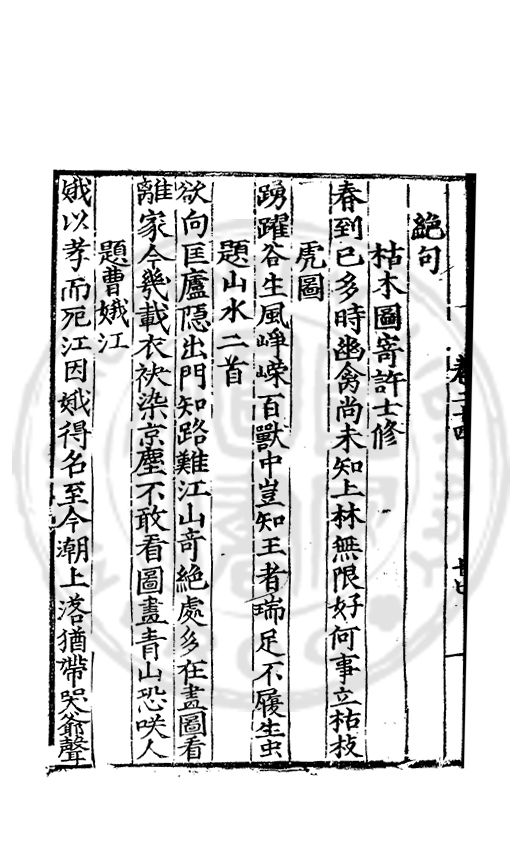 絕句
枯木圖寄許士修
春到已多時幽禽尚未知上林無限好何事立枯枝
虎圖
踴躍谷生風崢嶸百獸中豈知王者瑞足不履生虫
題山水二首
欲向匡廬隱出門知路難江山奇絕處多在畫圖看
離家今幾載衣袂染京塵不敢看圖畫青山恐咲人
題曹娥江
娥以孝而死江因娥得名至今潮上落猶帶哭爺聲